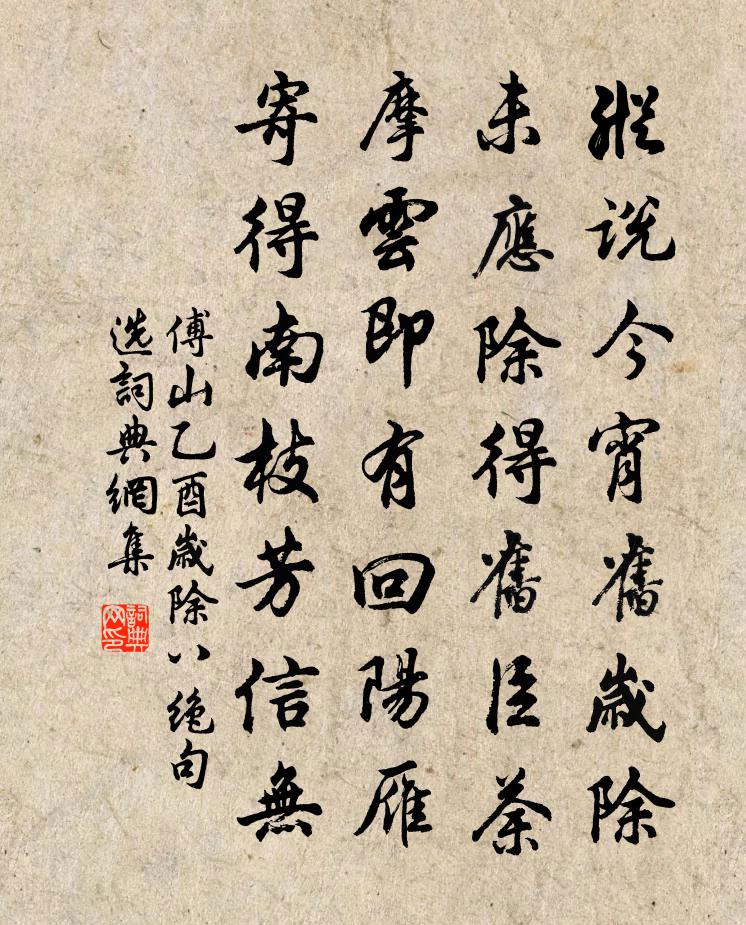 縱說今宵舊歲除
未應除得舊臣荼
摩雲即有回陽雁
寄得南枝芳信無
傅山乙酉歲除八絕句
選詞典網集
詞典網印